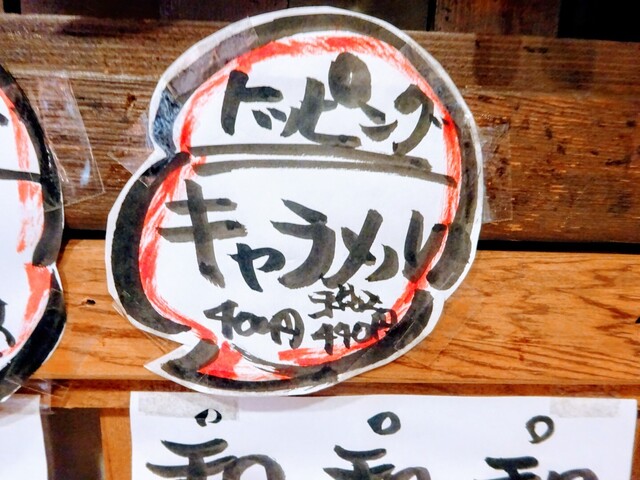 トッピング
キャラメル
400円 税込440円